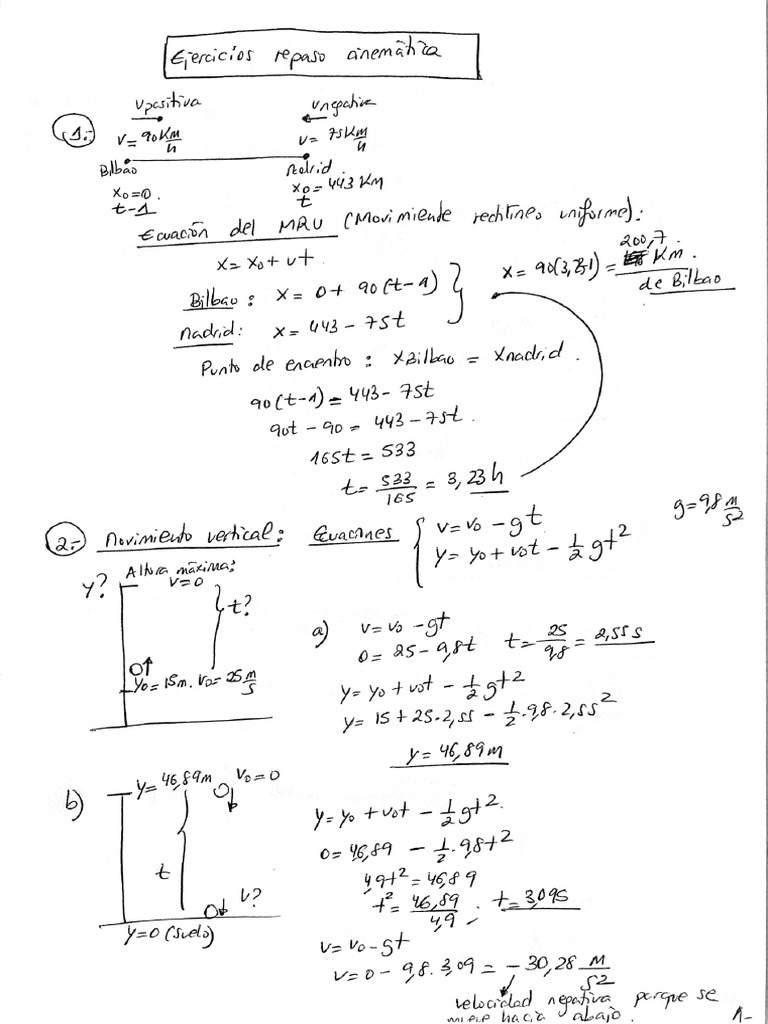 Ejercicios repaso cinemática
v positiva
v negativa
1.-
v = 90 Km/h
v = 75 Km/h
Bilbao
Madrid
x0 = 0.
x0 = 443 Km
t-1
t
Ecuación del MRU (Movimiento rectilíneo uniforme):
x = x0 + vt.
Bilbao: x = 0 + 90(t-1)
Madrid: x = 443 - 75t
x = 90(3,23-1) = 200,7 Km. de Bilbao
Punto de encuentro: xBilbao = xMadrid.
90(t-1) = 443 - 75t
90t - 90 = 443 - 75t.
165t = 533
t = 533/165 = 3,23 h
2.- Movimiento vertical: Ecuaciones
v = v0 - gt
y = y0 + v0t - 1/2 gt²
g = 9,8 m/s2
Altura máxima:
y?
v = 0
t?
y0 = 15m. v0 = 25 m/s
a)
v = v0 - gt
0 = 25 - 9,8t
t = 25/9,8 = 2,55 s
y = y0 + v0t - 1/2 gt²
y = 15 + 25·2,55 - 1/2·9,8·2,55²
y = 46,89 m
b)
y = 46,89m
v0 = 0
t
v?
y = 0 (suelo)
y = y0 + v0t - 1/2 gt².
0 = 46,89 - 1/2·9,8t²
4,9t² = 46,89
t² = 46,89/4,9; t = 3,09s
v = v0 - gt
v = 0 - 9,8·3,09 = -30,28 m/s2
velocidad negativa porque se
mueve hacia abajo.
1-